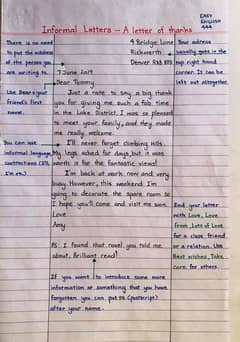 EASY
ENGLISH
444
Informal Letters – A letter of thanks
There is no need
to put the address
of the person you
are writing to.
Use Dear + your
friend's first
name.
You can use
informal language
contractions (I'll,
I'm etc.)
4 Bridge Lane
Rickworth
Denver
7 June 2019
Dear Tommy
Just a note to say a big thank
you for giving me such a fab time
in the Lake District. I was so pleased
to meet your family, and they made
me really welcome.
I'll never forget climbing hills.
My legs ached for days, but it was
worth it for the fantastic views!
I'm back at work now and very
busy. However, this weekend I'm
going to decorate the spare room so
I hope you'll come and visit me soon.
Love
Amy
PS I found that novel you told me
about. Brilliant read!
If you want to introduce some more
information or something that you have
forgotten you can put PS (postscript)
after your name.
Your adress
usually goes in the
top right hand
corner. It can be
left out altogether.
End your letter
with Love, Love
from, Lots of Love
for a close friend
or a relation. Use
Best wishes, Take
care for others.